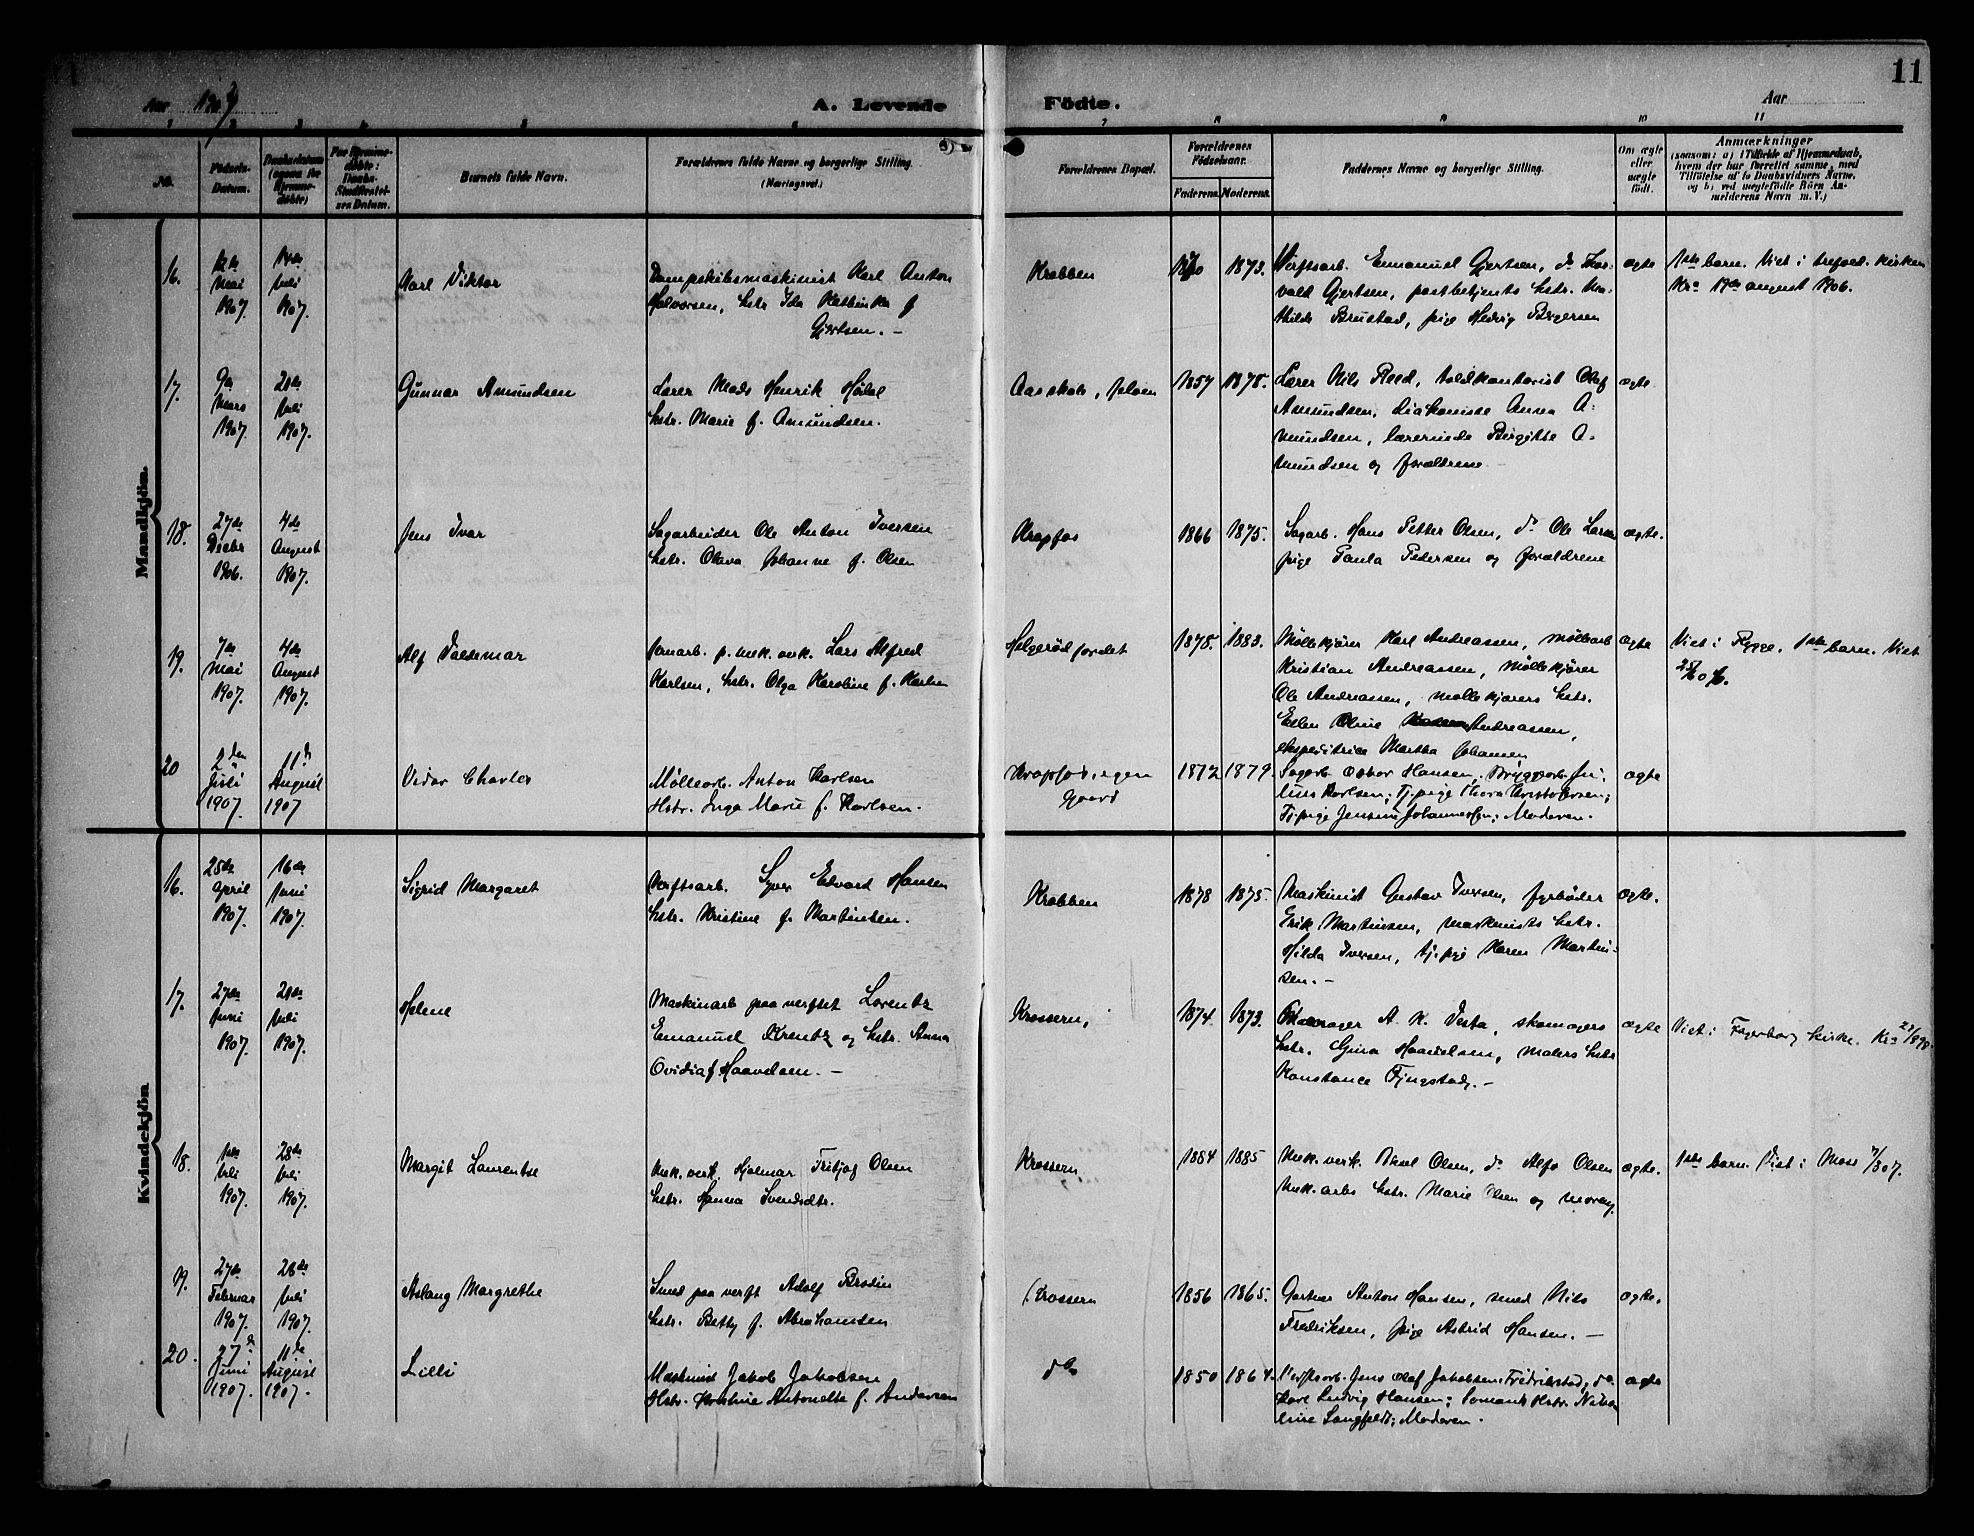 11
Aar 1907
A. Levende
Födte.
Aar
1 2 3 4 5 6 7 8 9 10 11
No.
Födsels-Datum.
Barnets fulde Navn.
Forældrenes fulde Navne og borgerlige Stilling.
(Næringsvei.)
Forældrenes Bopæl.
Forældrenes Födselsaar.
Faderens. Moderens.
Faddernes Navne og borgerlige Stilling.
Om ægte eller uægte födt.
Anmærkninger
(saasom: a) i Tilfælde af Hjemmedaab,
hvem der har forrettet samme, med
Tilföielse af to Daabsvidners Navne,
og b) ved uægtefödte Börn An-
melderens Navn m. V.)
Mandkjön.
16. 12te Mai 1907. 14de juli 1907. Karl Viktor
Dampskibsmaskinist Karl Anton
Halvorsen, hstr Ida Kathinka f
Gjertsen. –
Krabben 1870 1873.
Verftsarb. Emanuel Gjertsen, do Thor-
vald Gjertsen, postbetjents hstr. Ma-
thilde Brustad, pige Hedvig Birgersen
ægte
1ste barn. Viet i trefold. kirken
Kra 19de august 1906.
17. 9de Mars 1907. 28de juli 1907. Gunnar Amundsen
Lærer Mads Henrik Hødal
hstr. Marie f. Amundsen.
Aas skole, Jeløen 1857 1878.
Lærer Nils Reed, toldkontorist Olaf
Amundsen, diakonisse Anna A-
mundsen, lærerinde Birgitte A-
mundsen og forældrene
ægte
18. 27de Decbr 1906. 4de August 1907. Jens Ivar
Sagarbeider Ole Anton Iversen
hstr. Olava Johanne f. Olsen
Krapfos 1866 1875.
Sagarb. Hans Petter Olsen, do Ole Larsen
pige Paula Pedersen og forældrene
ægte.
19. 7de Mai 1907. 4de August 1907. Alf Valdemar
Jernarb. p. mek. verk. Lars Alfred
Karlsen, hstr. Olga Karoline f. Karlsen
Helgerødfordet 1878. 1883.
Møllekjører Karl Andreassen, møllearb
Kristian Andreassen, møllekjører
Ole Andreassen, møllekjørers hstr.
Ellen Oline Andreassen,
ekspeditrice Martha Johansen
ægte
Viet i Rygge. 1ste barn. Viet
20 2den Juli 1907. 11de August 1907 Vidar Charles
Møllearb. Anton Karlsen
Hstr. Inga Marie f. Karlsen.
Krapfos, egen
Gaard
1872 1879.
Sagarb. Oskar Hansen, Bryggearb. Ju-
lius Karlsen; Tj.pige Thora Kristoffersen;
Tj.pige Jensine Johannessen; Moderen.
ægte
Kvindekjön
16. 28de April 1907. 16de Juni 1907. Sigrid Margaret
Verftsarb. Syver Edvard Hansen
hstr. Kristine f. Martinsen.
Krabben 1878 1875.
Maskinist Gustav Iversen, fyrbøder
Erik Martinsen, maskinists hstr.
Hilda Iversen, tj.pige Karen Martin-
sen. –
ægte.
17. 27de Juni 1907. 28de juli 1907. Helene
Maskinarb paa verftet Lorentz
Emanuel Krentz og hstr. Anna
Ovidia f Haavelsen. –
Krossern, 1874. 1873.
Skomager A. K. Vesta, skomagers
hstr. Gina Haavelsen, malers hstr
Konstance Fjugstad. –
ægte
Viet i Fagerborg kirke. Kra 27/898.
18. 1ste juli 1907. 28de juli 1907. Margit Laurentse
Mek. verk. Hjalmar Fritjof Olsen
hstr. Hanna Svendsdtr.
Krossern 1884 1885
Mek. verk. Aksel Olsen, do Alfr Olsen
Mek. arbs hstr. Marie Olsen og moren.
ægte.
1ste barn. Viet i Moss 7/307.
19. 27de Februar 1907. 28de juli 1907. Aslaug Margrethe
Smed paa verft Adolf Brodin
hstr. Betty f. Abrahamsen
Krossern 1856 1865.
Gartner Anton Hansen, smed Nils
Fredriksen, pige Astrid Hansen. –
ægte.
20. 27de Juni 1907. 11de August 1907. Lilli
Maskinist Jakob Jakobsen
Hstr. Kristine Antonette f. Andersen
do 1850 1864.
Verftsarb. Jens Olaf Jakobsen, Fredrikstad, do.
Karl Ludvig Hansen; Sømands Hstr. Niko-
line Langfeldt; Moderen.
ægte